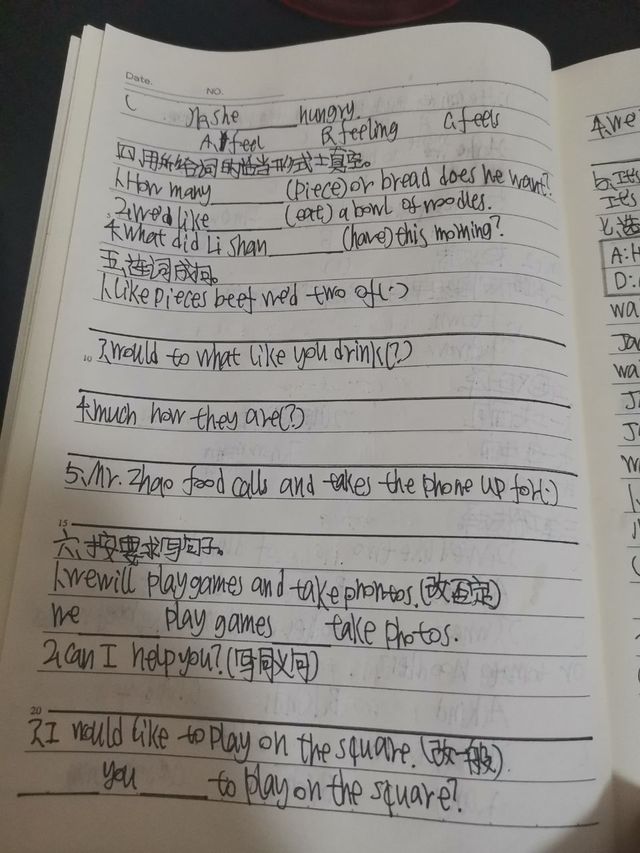 Date.
NO.
she ____ hungry.
A. feel B. feeling C. feels
四、用所给词的恰当形式填空。
1. How many ______ (piece) or bread does he want?
2. we'd like ______ (eat) a bowl of noodles.
4. what did Li shan ______ (have) this morning?
五、连词成句。
1. like pieces beef we'd two of(.)
10 3. would to what like you drink(?)
4. much how they are(?)
5. Mr. Zhao food calls and takes the phone up for(.)
15
六、按要求写句子。
1. we will play games and take photos. (改否定)
we ______ play games ____ take photos.
2. can I help you? (写同义句)
20
3. I would like to play on the square. (改一般)
______ you _____ to play on the square?
4. we
It's
It's
A: H
D:
wa
Ja
wa
J
J